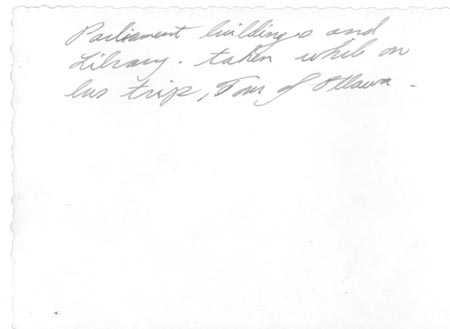 Parliament buildings and
Library. taken while on
bus trip, Tour of Ottawa.